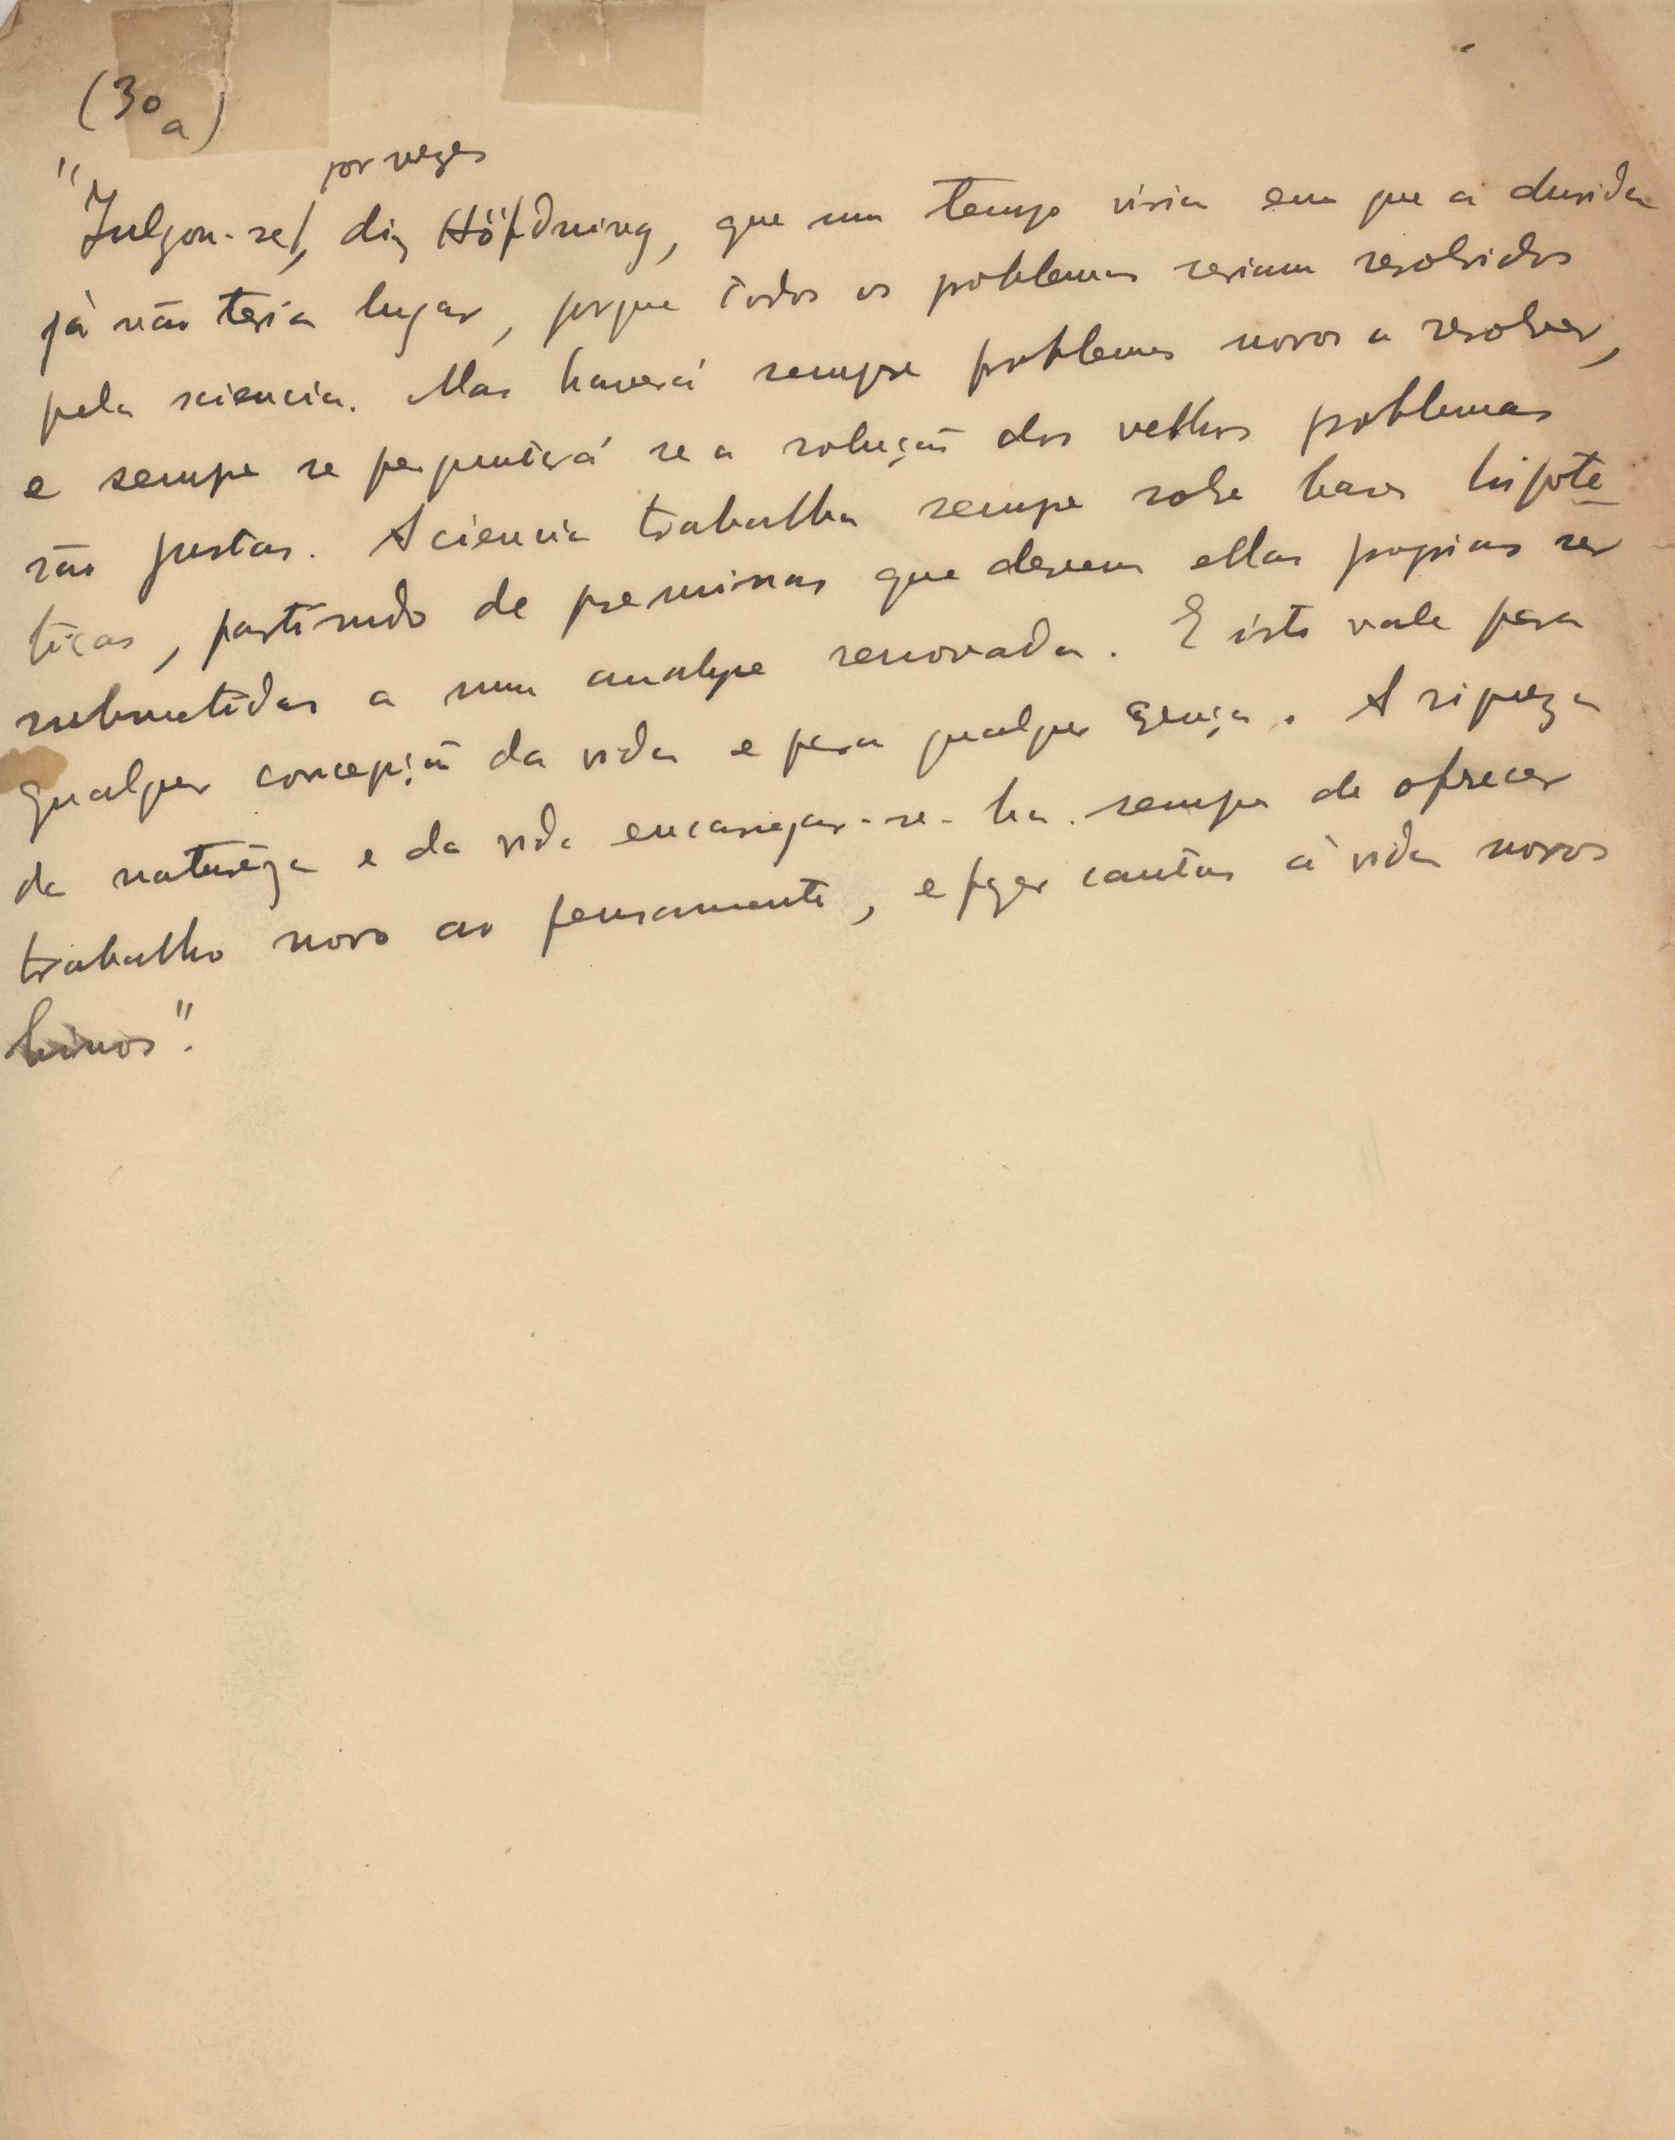 (30a)
por vezes
"Julgou-se, diz Höfdning, que um tempo viria em que a duvida
já não teria lugar, porque todos os problemas seriam resolvidos
pela sciencia. Mas haverá sempre problemas novos a resolver,
e sempre se perguntará se a solução dos velhos problemas
são justas. A ciencia trabalha sempre sobre bases hipoté-
ticas, partindo de premissas que devem ellas proprias ser
submetidas a uma analyse renovada. E isto vale para
qualquer concepção da vida e para qualquer crença. A riqueza
da naturêza e da vida encarregar-se-ha sempre de ofrecer
trabalho novo ao pensamento, e fazer cantar à vida novos
hinos".